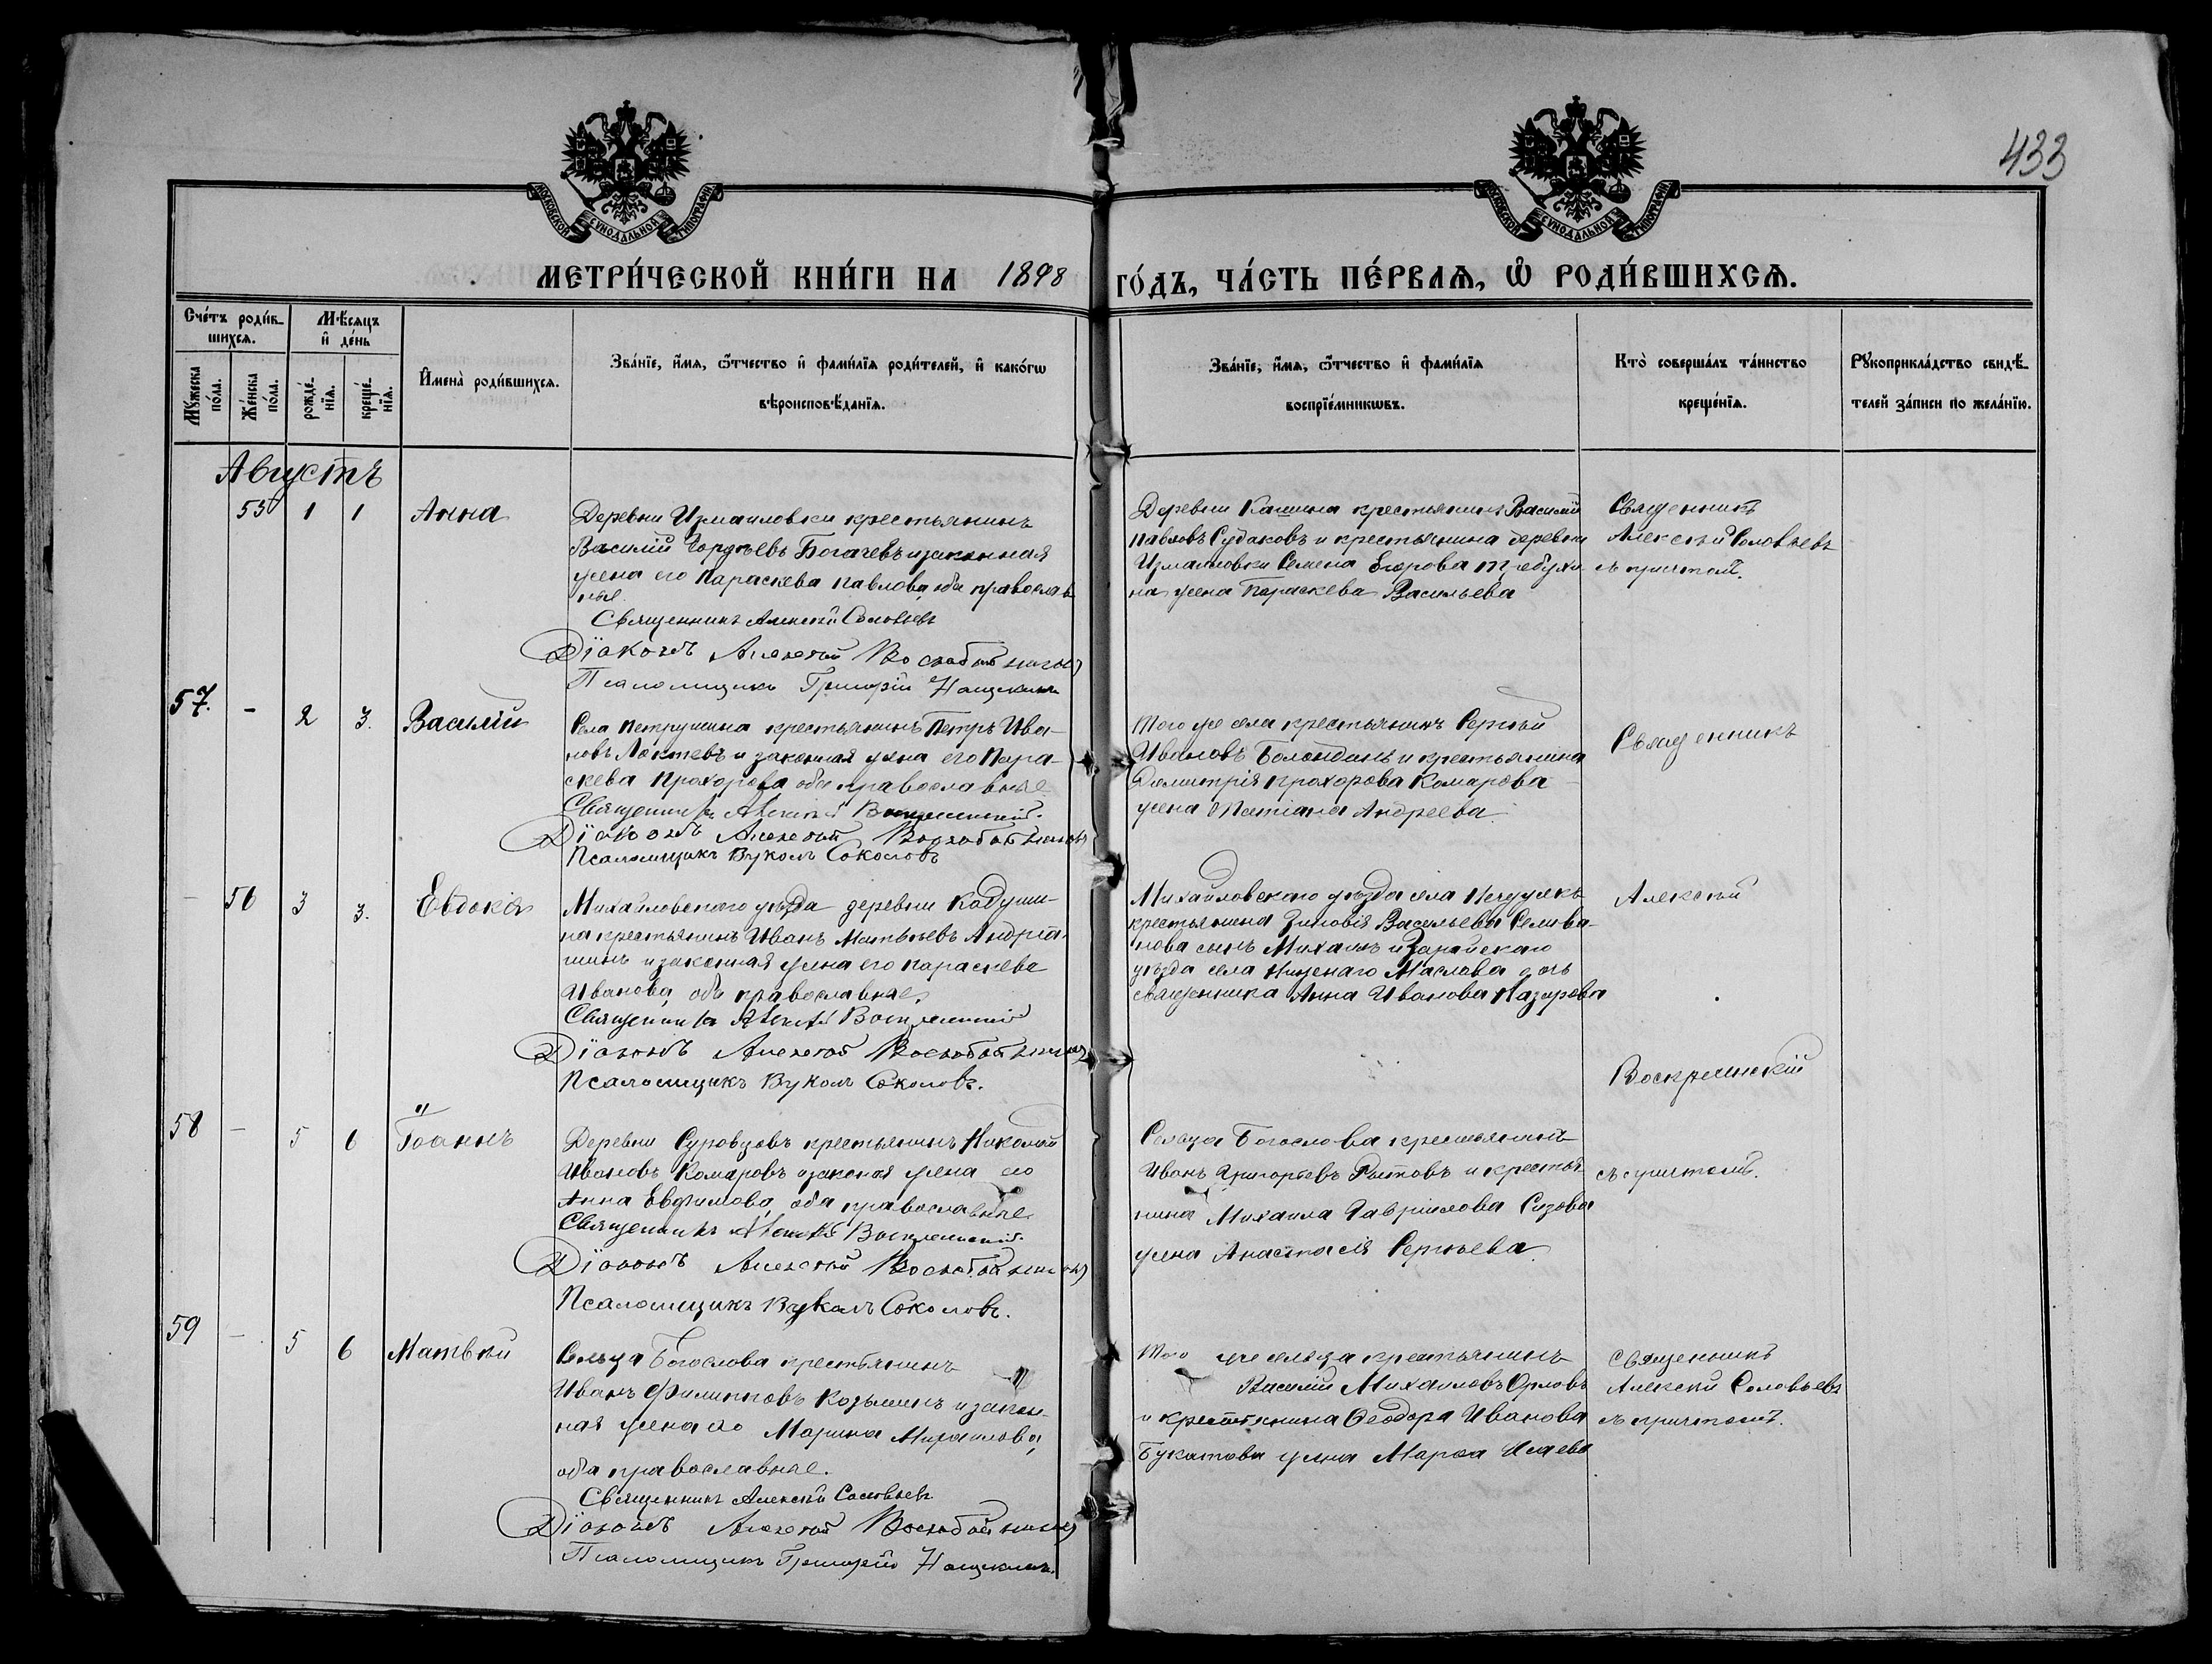 433
МОСКОВСКОЙ СѴНОДАЛЬНОЙ ТИПОГРАФІИ
МОСКОВСКОЙ СѴНОДАЛЬНОЙ ТИПОГРАФІИ
МЕТРИ́ЧЕСКОЙ КНИ́ГИ НА 1898 ГО́ДЪ, ЧА́СТЬ ПЕ́РВАѦ, Ѡ҆ РОДИ́ВШИХСѦ.
Сче́тъ роди́в-
шихсѧ.
Мѣ́сѧцъ
и҆ де́нь
Мꙋ́жеска по́ла.
Же́нска по́ла.
рожде́-
нїѧ.
креще́-
нїѧ.
И҆мена̀ роди́вшихсѧ.
Зва́нїе, и҆́мѧ, ѻ҆́тчество и҆ фами́лїѧ роди́телей, и҆ како́гѡ
вѣроисповѣ́данїѧ.
Зва́нїе, и҆́мѧ, ѻ҆́тчество и҆ фами́лїѧ
воспрїе́мникѡвъ.
Кто̀ соверша́лъ та́инство
креще́нїѧ.
Рꙋкоприкла́дство свидѣ́-
телей за́писи по жела́нїю.
Августъ
55 1 1 Анна
Деревни Измаиловки крестьянинъ
Василій Гордѣевъ Богачевъ и законная
жена его Параскева Павлова, оба православ
ные.
Священникъ Алексѣй Соловьевъ
Діаконъ Алексѣй Воскобойниковъ
Псаломщикъ Григорій Нащокинъ
Деревни Кашина крестьянинъ Василій
Павловъ Судаковъ и крестьянина деревни
Измаиловки Семена Егорова Требухи
на жена Параскева Васильева
Священникъ
Алексѣй Соловьевъ
съ причтомъ.
57. - 2 3. Василій
Села Петрушина крестьянинъ Петръ Ива-
новъ Локтевъ и законная жена его Пара-
скева Прохорова оба православные
Священникъ Алексѣй Воскресенскій.
Діаконъ Алексѣй Воскобойниковъ
Псаломщикъ Вуколъ Соколовъ
Того же села крестьянинъ Сергѣй
Ивановъ Болондинъ и крестьянина
Димитрія Прохорова Комарова
жена Татіана Андреева.
Священникъ
- 56 3 3. Евдокія
Михайловскаго уѣзда деревни Кадуши-
на крестьянинъ Иванъ Матвѣевъ Андрiя-
шинъ и законная жена его Параскева
Иванова, оба православные.
Священникъ Алексѣй Воскресенскій
Діаконъ Алексѣй Воскобойниковъ
Псаломщикъ Вуколъ Соколовъ.
Михайловскаго уѣзда села
крестьянина Зиновія Васильева Селива-
нова сынъ Михаилъ и Зарайскаго
уѣзда села Маслова дочь
священника Анна Иванова Назарова
Алексѣй
Воскресенскій
58 - 5 6 Іоаннъ
Деревни Суровцовъ крестьянинъ Николай
Ивановъ Комаровъ и законная жена его
Анна Евфимова, оба православные
Священникъ Алексѣй Воскресенскій.
Діаконъ Алексѣй Воскобойниковъ
Псаломщикъ Вуколъ Соколовъ.
Сельца Богослова крестьянинъ
Иванъ Григорьевъ и крестья
нина Михаила Гавриилова Сизова
жена Анастасія Сергѣева
съ причтомъ.
59 - 5 6 Матвѣй
Сельца Богослова крестьянинъ
Иванъ Филипповъ Козьминъ и закон-
ная жена его Марина Михаилова,
оба православные.
Священникъ Алексѣй Соловьевъ
Діаконъ Алексѣй Воскобойниковъ
Псаломщикъ Григорій Нащокинъ.
Того же сельца крестьянинъ
Василій Михаиловъ Орловъ
и крестьянина Ѳеодора Иванова
Букатова жена Марѳа Исаева
Священникъ
Алексѣй Соловьевъ
съ причтомъ.